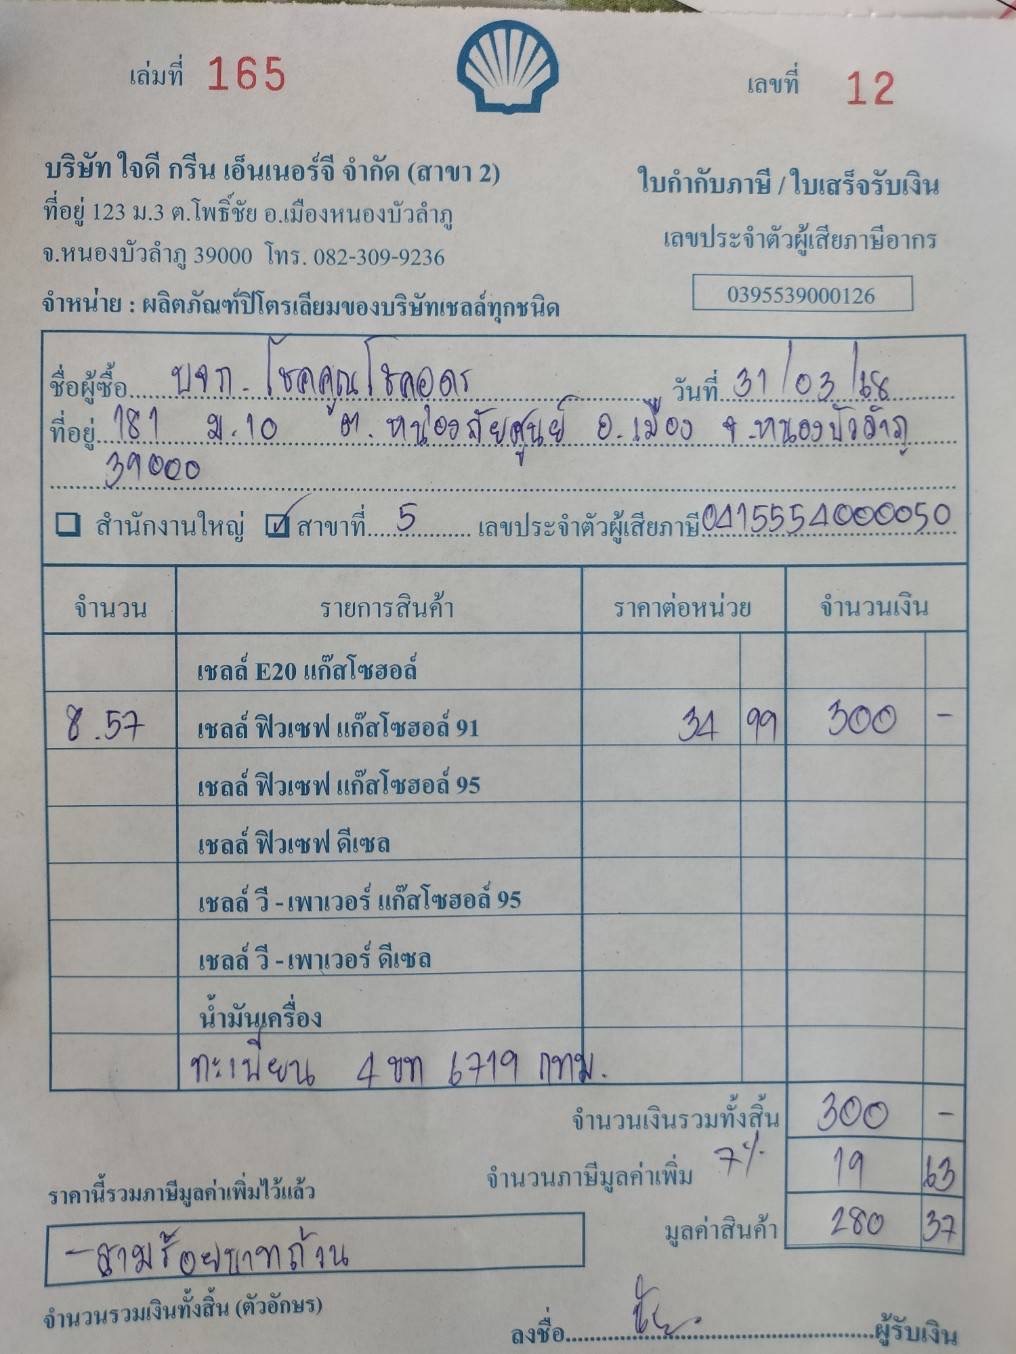 เล่มที่ 165
เลขที่ 12
บริษัท ใจดี กรีน เอ็นเนอร์จี จำกัด (สาขา 2)
ที่อยู่ 123 ม.3 ต.โพธิ์ชัย อ.เมืองหนองบัวลำภู
จ.หนองบัวลำภู 39000 โทร. 082-309-9236
จำหน่าย : ผลิตภัณฑ์ปิโตรเลียมของบริษัทเชลล์ทุกชนิด
ใบกำกับภาษี / ใบเสร็จรับเงิน
เลขประจำตัวผู้เสียภาษีอากร
0395539000126
ชื่อผู้ซื้อ บจก. โชคคูณโชคอุดร วันที่ 31/03/68
ที่อยู่ 181 ม.10 ต.หนองภัยศูนย์ อ.เมือง จ.หนองบัวลำภู
39000
สำนักงานใหญ่ สาขาที่ 5 เลขประจำตัวผู้เสียภาษี 0415554000050
จำนวน รายการสินค้า ราคาต่อหน่วย จำนวนเงิน
เชลล์ E20 แก๊สโซฮอล์
8.57 เชลล์ ฟิวเซฟ แก๊สโซฮอล์ 91 34 99 300 -
เชลล์ ฟิวเซฟ แก๊สโซฮอล์ 95
เชลล์ ฟิวเซฟ ดีเซล
เชลล์ วี - เพาเวอร์ แก๊สโซฮอล์ 95
เชลล์ วี - เพาเวอร์ ดีเซล
น้ำมันเครื่อง
ทะเบียน 4 ขท 6719 กทม.
จำนวนเงินรวมทั้งสิ้น 300 -
จำนวนภาษีมูลค่าเพิ่ม 7% 19 63
มูลค่าสินค้า 280 37
ราคานี้รวมภาษีมูลค่าเพิ่มไว้แล้ว
- สามร้อยบาทถ้วน
จำนวนรวมเงินทั้งสิ้น (ตัวอักษร)
ลงชื่อ ผู้รับเงิน